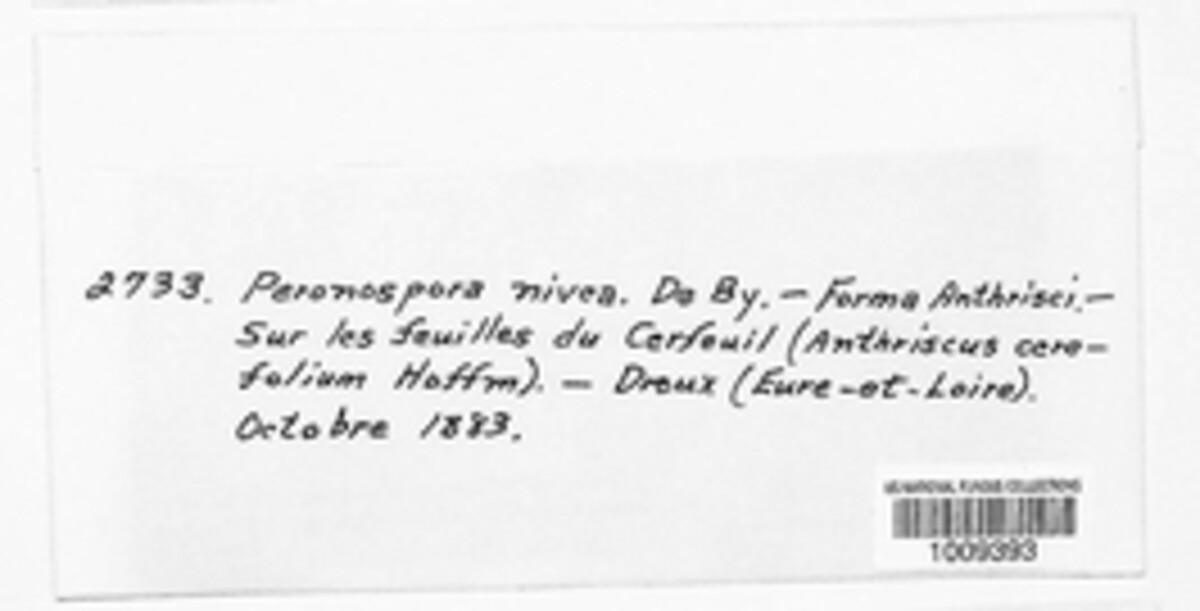 2733. Peronospora nivea. De By. — Forma Anthrisci. —
Sur les feuilles du Cerfeuil (Anthriscus cere-
folium Hoffm). — Dreux (Eure-et-Loire).
Octobre 1883.
US NATIONAL FUNGUS COLLECTIONS
1009393